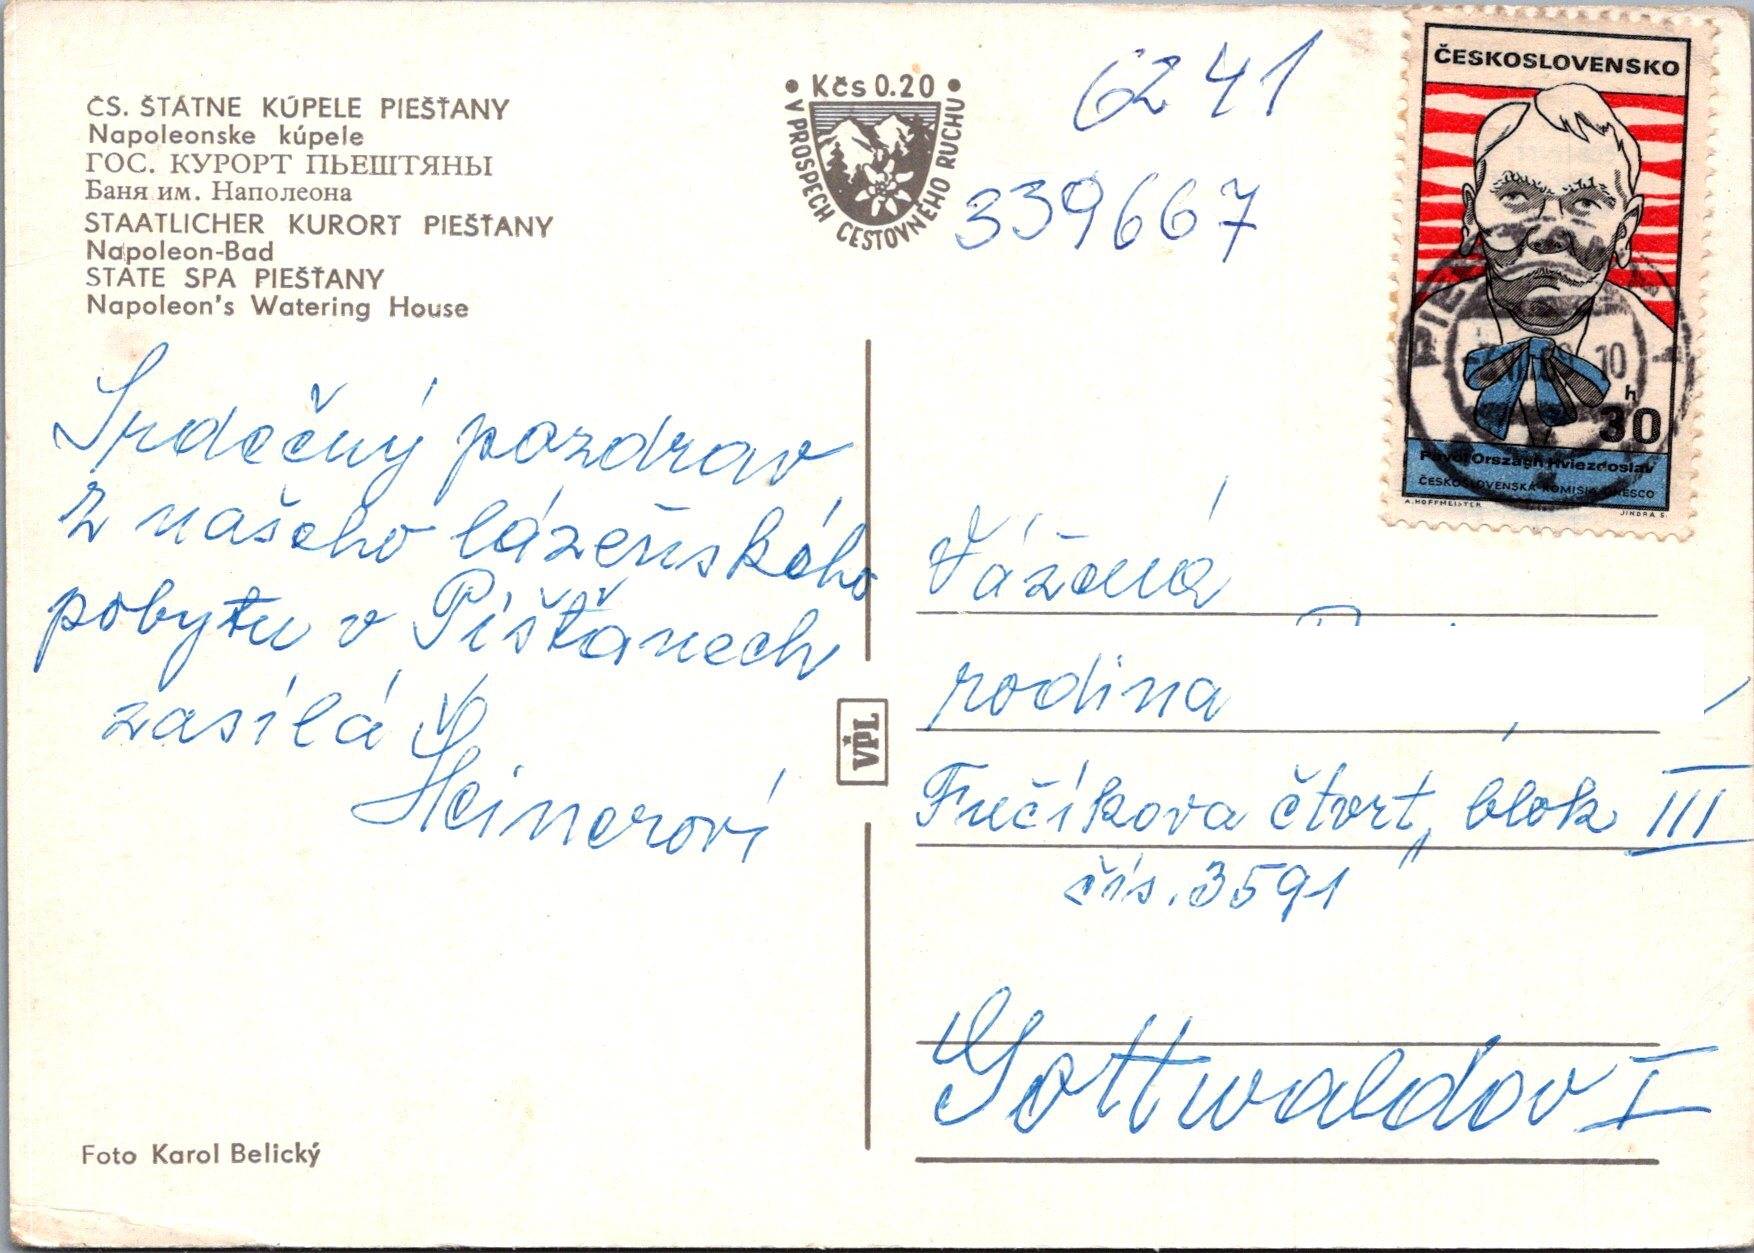 ČS. ŠTÁTNE KÚPELE PIEŠŤANY
Napoleonske kúpele
ГОС. КУРОРТ ПЬЕШТЯНЫ
Баня им. Наполеона
STAATLICHER KURORT PIEŠŤANY
Napoleon-Bad
STATE SPA PIEŠŤANY
Napoleon's Watering House
• Kčs 0.20 •
V PROSPECH CESTOVNÉHO RUCHU
6241
339667
ČESKOSLOVENSKO
h
30
Pavol Országh Hviezdoslav
ČESKOSLOVENSKÁ KOMISIA UNESCO
A. HOFFMEISTER
JINDRA S.
10
Srdečný pozdrav
z našeho lázeňského
pobytu v Píšťanech
zasílá
Heinerovi
VPL
Vážená
rodina
Fučíkova čtvrť, blok III
čís. 3591
Gottwaldov I
Foto Karol Belický